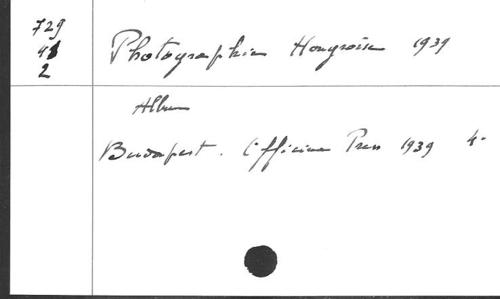 729
41
2
Photographia Hongroise 1939
Album
Budapest. Officina Press 1939 4.